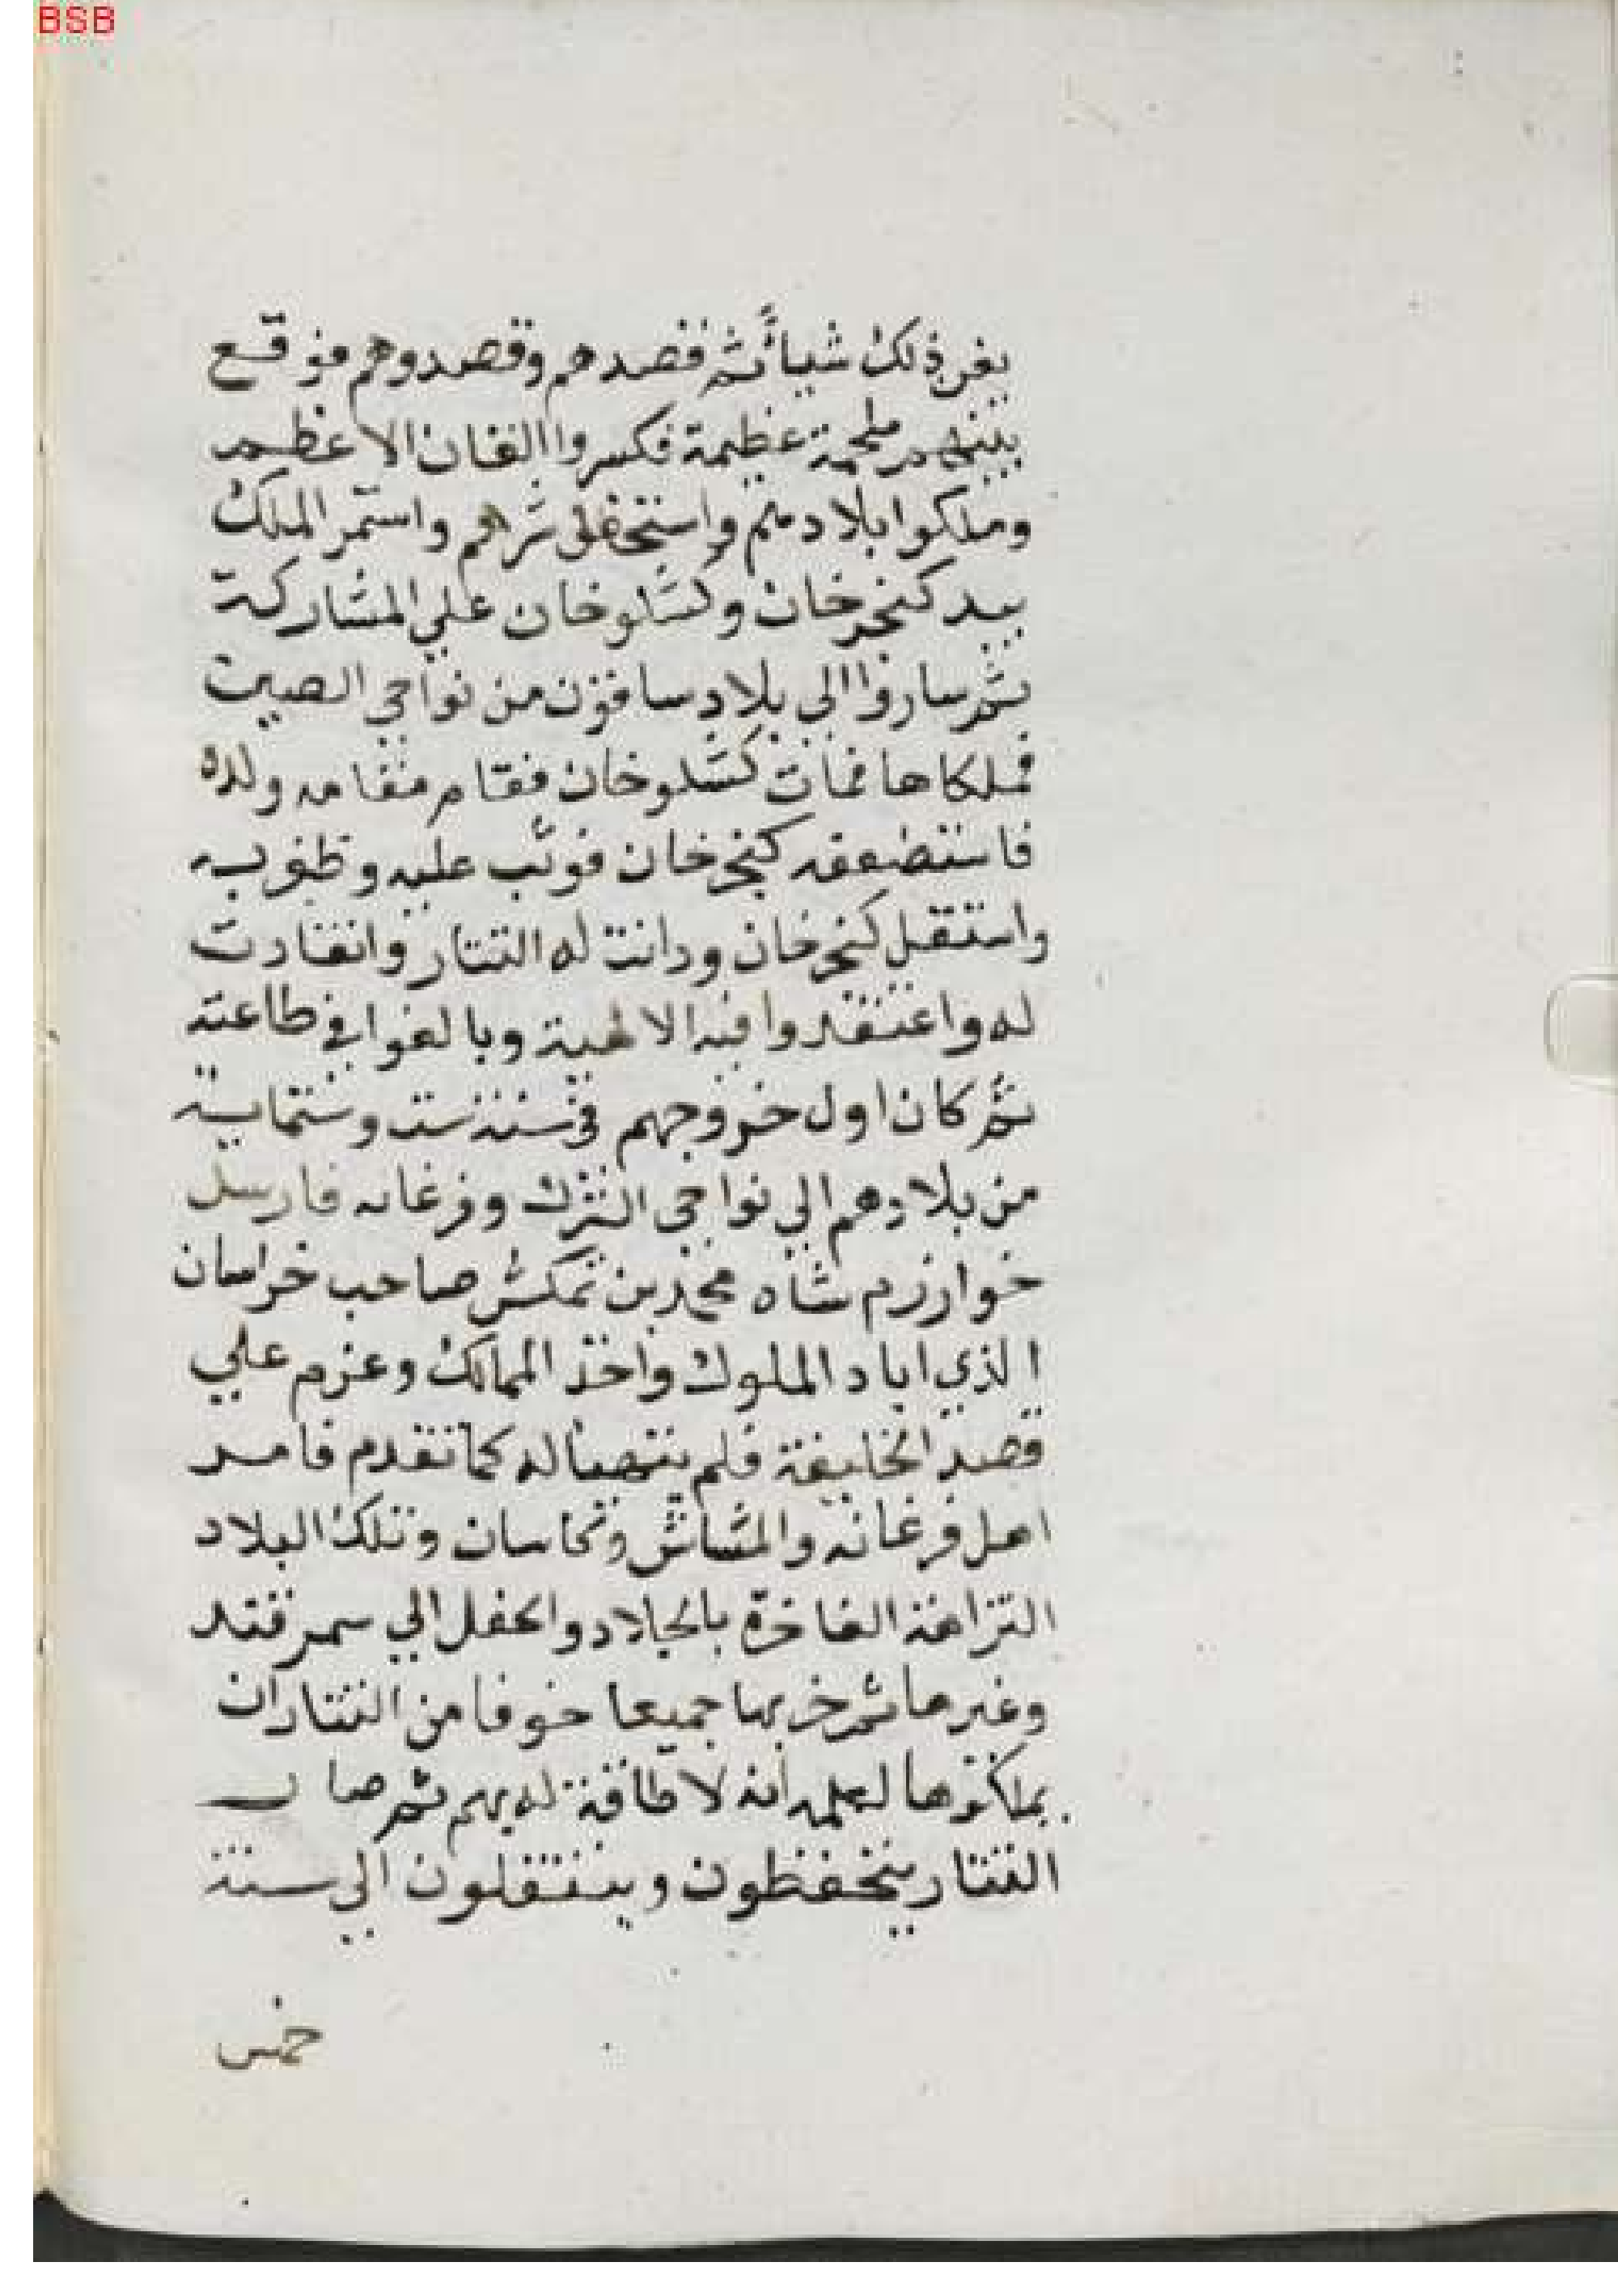 BSB
بغير ذلك شيأ ثم قصدهم وقصدوهم فوقع
بينهم ملحمة عظيمة فكسروا القان الاعظم
وملكوا بلادهم واستحفل شرهم واستمر الملك
بيد كنجرخان وكشلوخان علي المشاركة
ثم ساروا الي بلاد ساقون من نواحي الصين
فملكاها فمات كشلوخان فقام مقامه ولده
فاستضعفه كنجرخان فوثب عليه وظفر به
واستقل كنجرخان ودانت له التتار وانقادت
له واعتقدوا فيه الالهية وبالغوا في طاعته
ثم كان اول خروجهم في سنة ست وستماية
من بلادهم الي نواحي الترك وفرغانه فارسل
خوارزم شاه محمد بن تكش صاحب خراسان
الذي اباد الملوك واخذ الممالك وعزم علي
قصد الخليفة فلم يتهيأ له كما تقدم فامر
اهل فرغانه والشاش وكاسان وتلك البلاد
النزاهة الفاخرة بالجلاد والجفل الي سمرقند
وغيرها ثم خربها جميعا خوفا من التتار ان
يملكوها لعلمه انه لا طاقة له بهم ثم صار
التتار يتخفظون ويتنقلون الي سنة
خمس